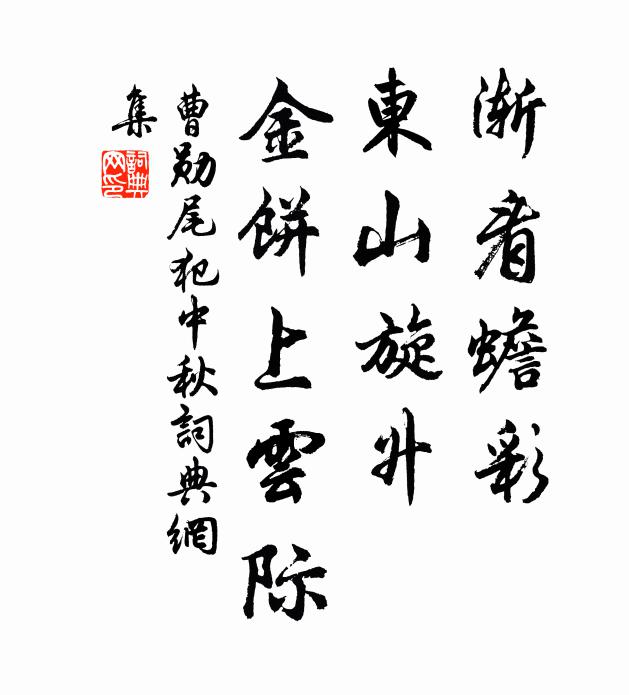 渐看蟾彩
東山旋升
金餅上雲际
曹勋尾犯中秋詞典網
集
詞典
网印